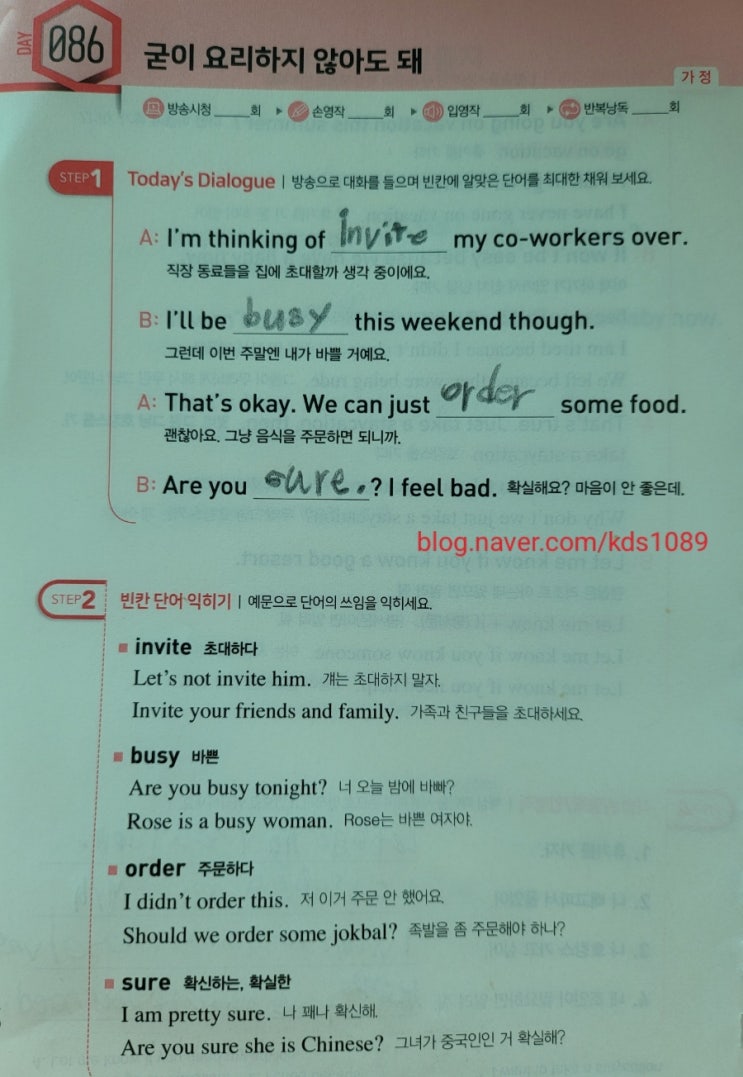 DAY 086 굳이 요리하지 않아도 돼
가정
방송시청 _____회 ▶ 손영작 _____회 ▶ 입영작 _____회 ▶ 반복낭독 _____회
STEP1 Today's Dialogue | 방송으로 대화를 들으며 빈칸에 알맞은 단어를 최대한 채워 보세요.
A: I'm thinking of invite my co-workers over.
직장 동료들을 집에 초대할까 생각 중이에요.
B: I'll be busy this weekend though.
그런데 이번 주말엔 내가 바쁠 거예요.
A: That's okay. We can just order some food.
괜찮아요. 그냥 음식을 주문하면 되니까.
B: Are you sure.? I feel bad. 확실해요? 마음이 안 좋은데.
blog.naver.com/kds1089
STEP2 빈칸 단어 익히기 | 예문으로 단어의 쓰임을 익히세요.
invite 초대하다
Let's not invite him. 걔는 초대하지 말자.
Invite your friends and family. 가족과 친구들을 초대하세요.
busy 바쁜
Are you busy tonight? 너 오늘 밤에 바빠?
Rose is a busy woman. Rose는 바쁜 여자야.
order 주문하다
I didn't order this. 저 이거 주문 안 했어요.
Should we order some jokbal? 족발을 좀 주문해야 하나?
sure 확신하는, 확실한
I am pretty sure. 나 꽤나 확신해.
Are you sure she is Chinese? 그녀가 중국인인 거 확실해?